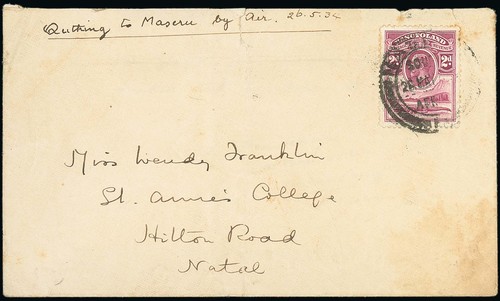 Quthing to Maseru by Air. 26.5.32
BASUTOLAND
2d. 2d.
Miss Wendy Franklin
St. Anne's College
Hilton Road
Natal